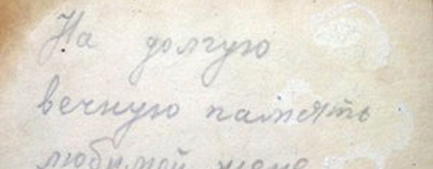 На долгую
вечную память
любимой жене